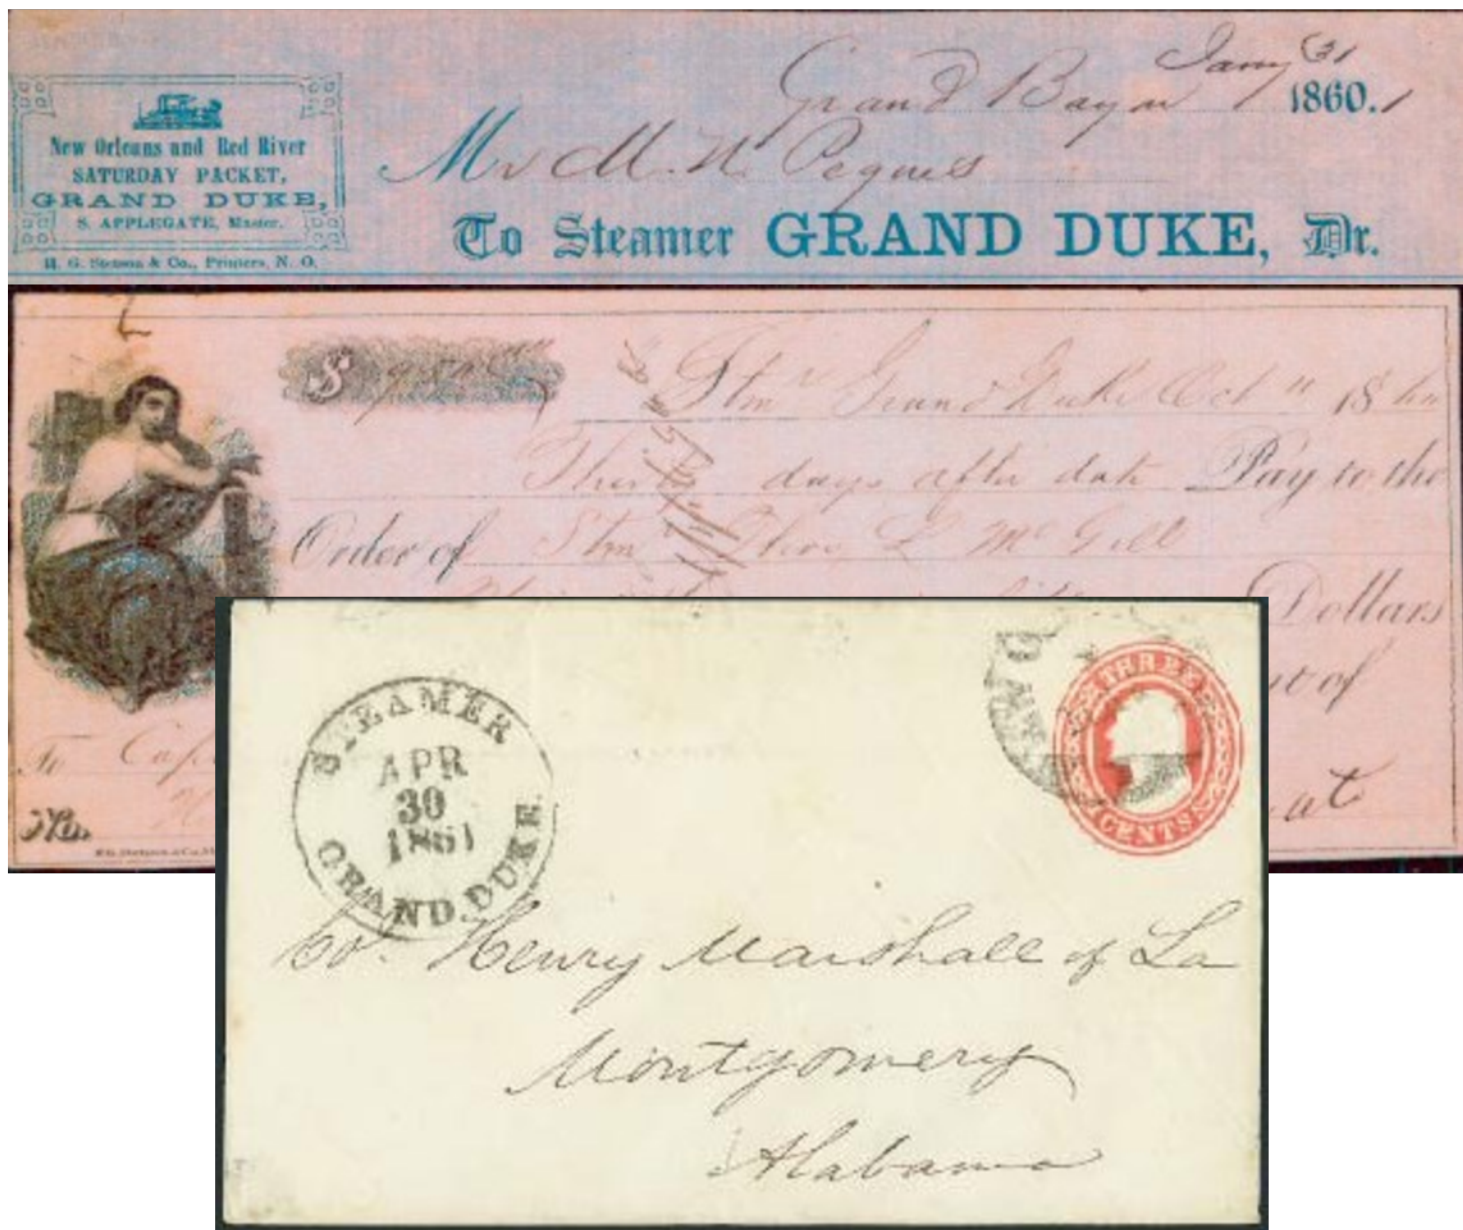 Jany 31
Grand Bayou 1860.1
New Orleans and Red River
SATURDAY PACKET,
GRAND DUKE,
S. APPLEGATE, Master.
H. G. Stetson & Co., Printers, N. O.
Mr M. W. Pegues
To Steamer GRAND DUKE, Dr.
$ Stmr Grand Duke Oct 11 1860
Thirty days after date Pay to the
Order of Stmr Thos L McGill
Dollars
of
To Capt
No.
STEAMER
APR
30
1861
GRAND DUKE.
THREE
CENTS
Col. Henry Marshall of La
Montgomery
Alabama